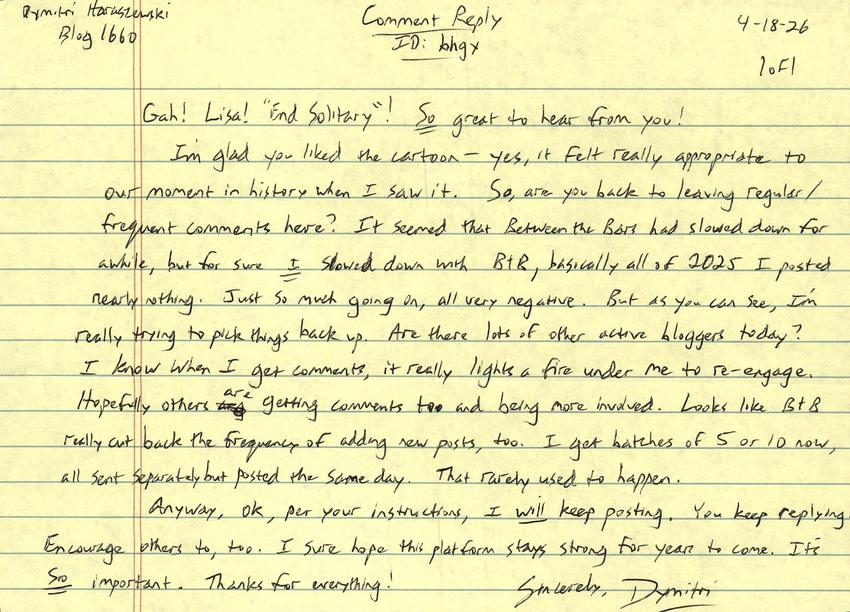 Dymitri Haraszewski
Blog 1660
Comment Reply
ID: bhgx
4-18-26
1 of 1
Gah! Lisa! "End Solitary"! So great to hear from you!
I'm glad you liked the cartoon — yes, it felt really appropriate to
our moment in history when I saw it. So, are you back to leaving regular/
frequent comments here? It seemed that Between the Bars had slowed down for
awhile, but for sure I slowed down with BtB, basically all of 2025 I posted
nearly nothing. Just so much going on, all very negative. But as you can see, I'm
really trying to pick things back up. Are there lots of other active bloggers today?
I know when I get comments, it really lights a fire under me to re-engage.
Hopefully others are getting comments too and being more involved. Looks like BtB
really cut back the frequency of adding new posts, too. I get batches of 5 or 10 now,
all sent separately but posted the same day. That rarely used to happen.
Anyway, ok, per your instructions, I will keep posting. You keep replying.
Encourage others to, too. I sure hope this platform stays strong for years to come. It's
so important. Thanks for everything!
Sincerely, Dymitri